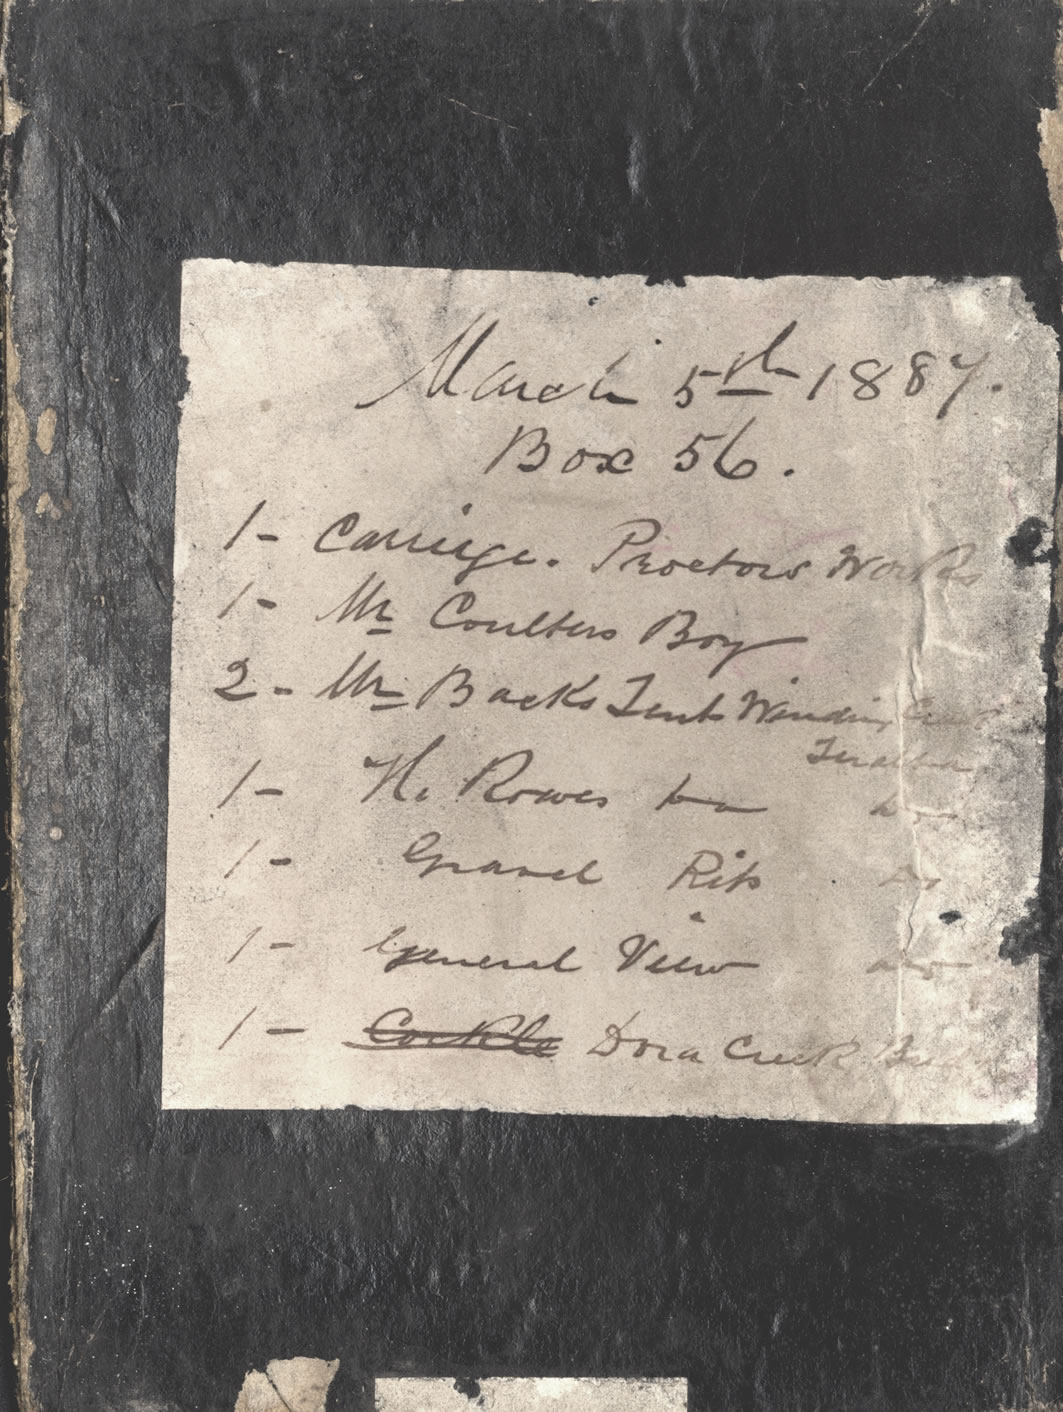 March 5th 1887.
Box 56.
1- Carriage. Proctors Works
1- Mr Coulters Boy
2- Mr Backs Tent Winding Creek
Teralba
1- H. Rowes do do
1- Gravel Pit do
1- General View do
1- Cockle Dora Creek